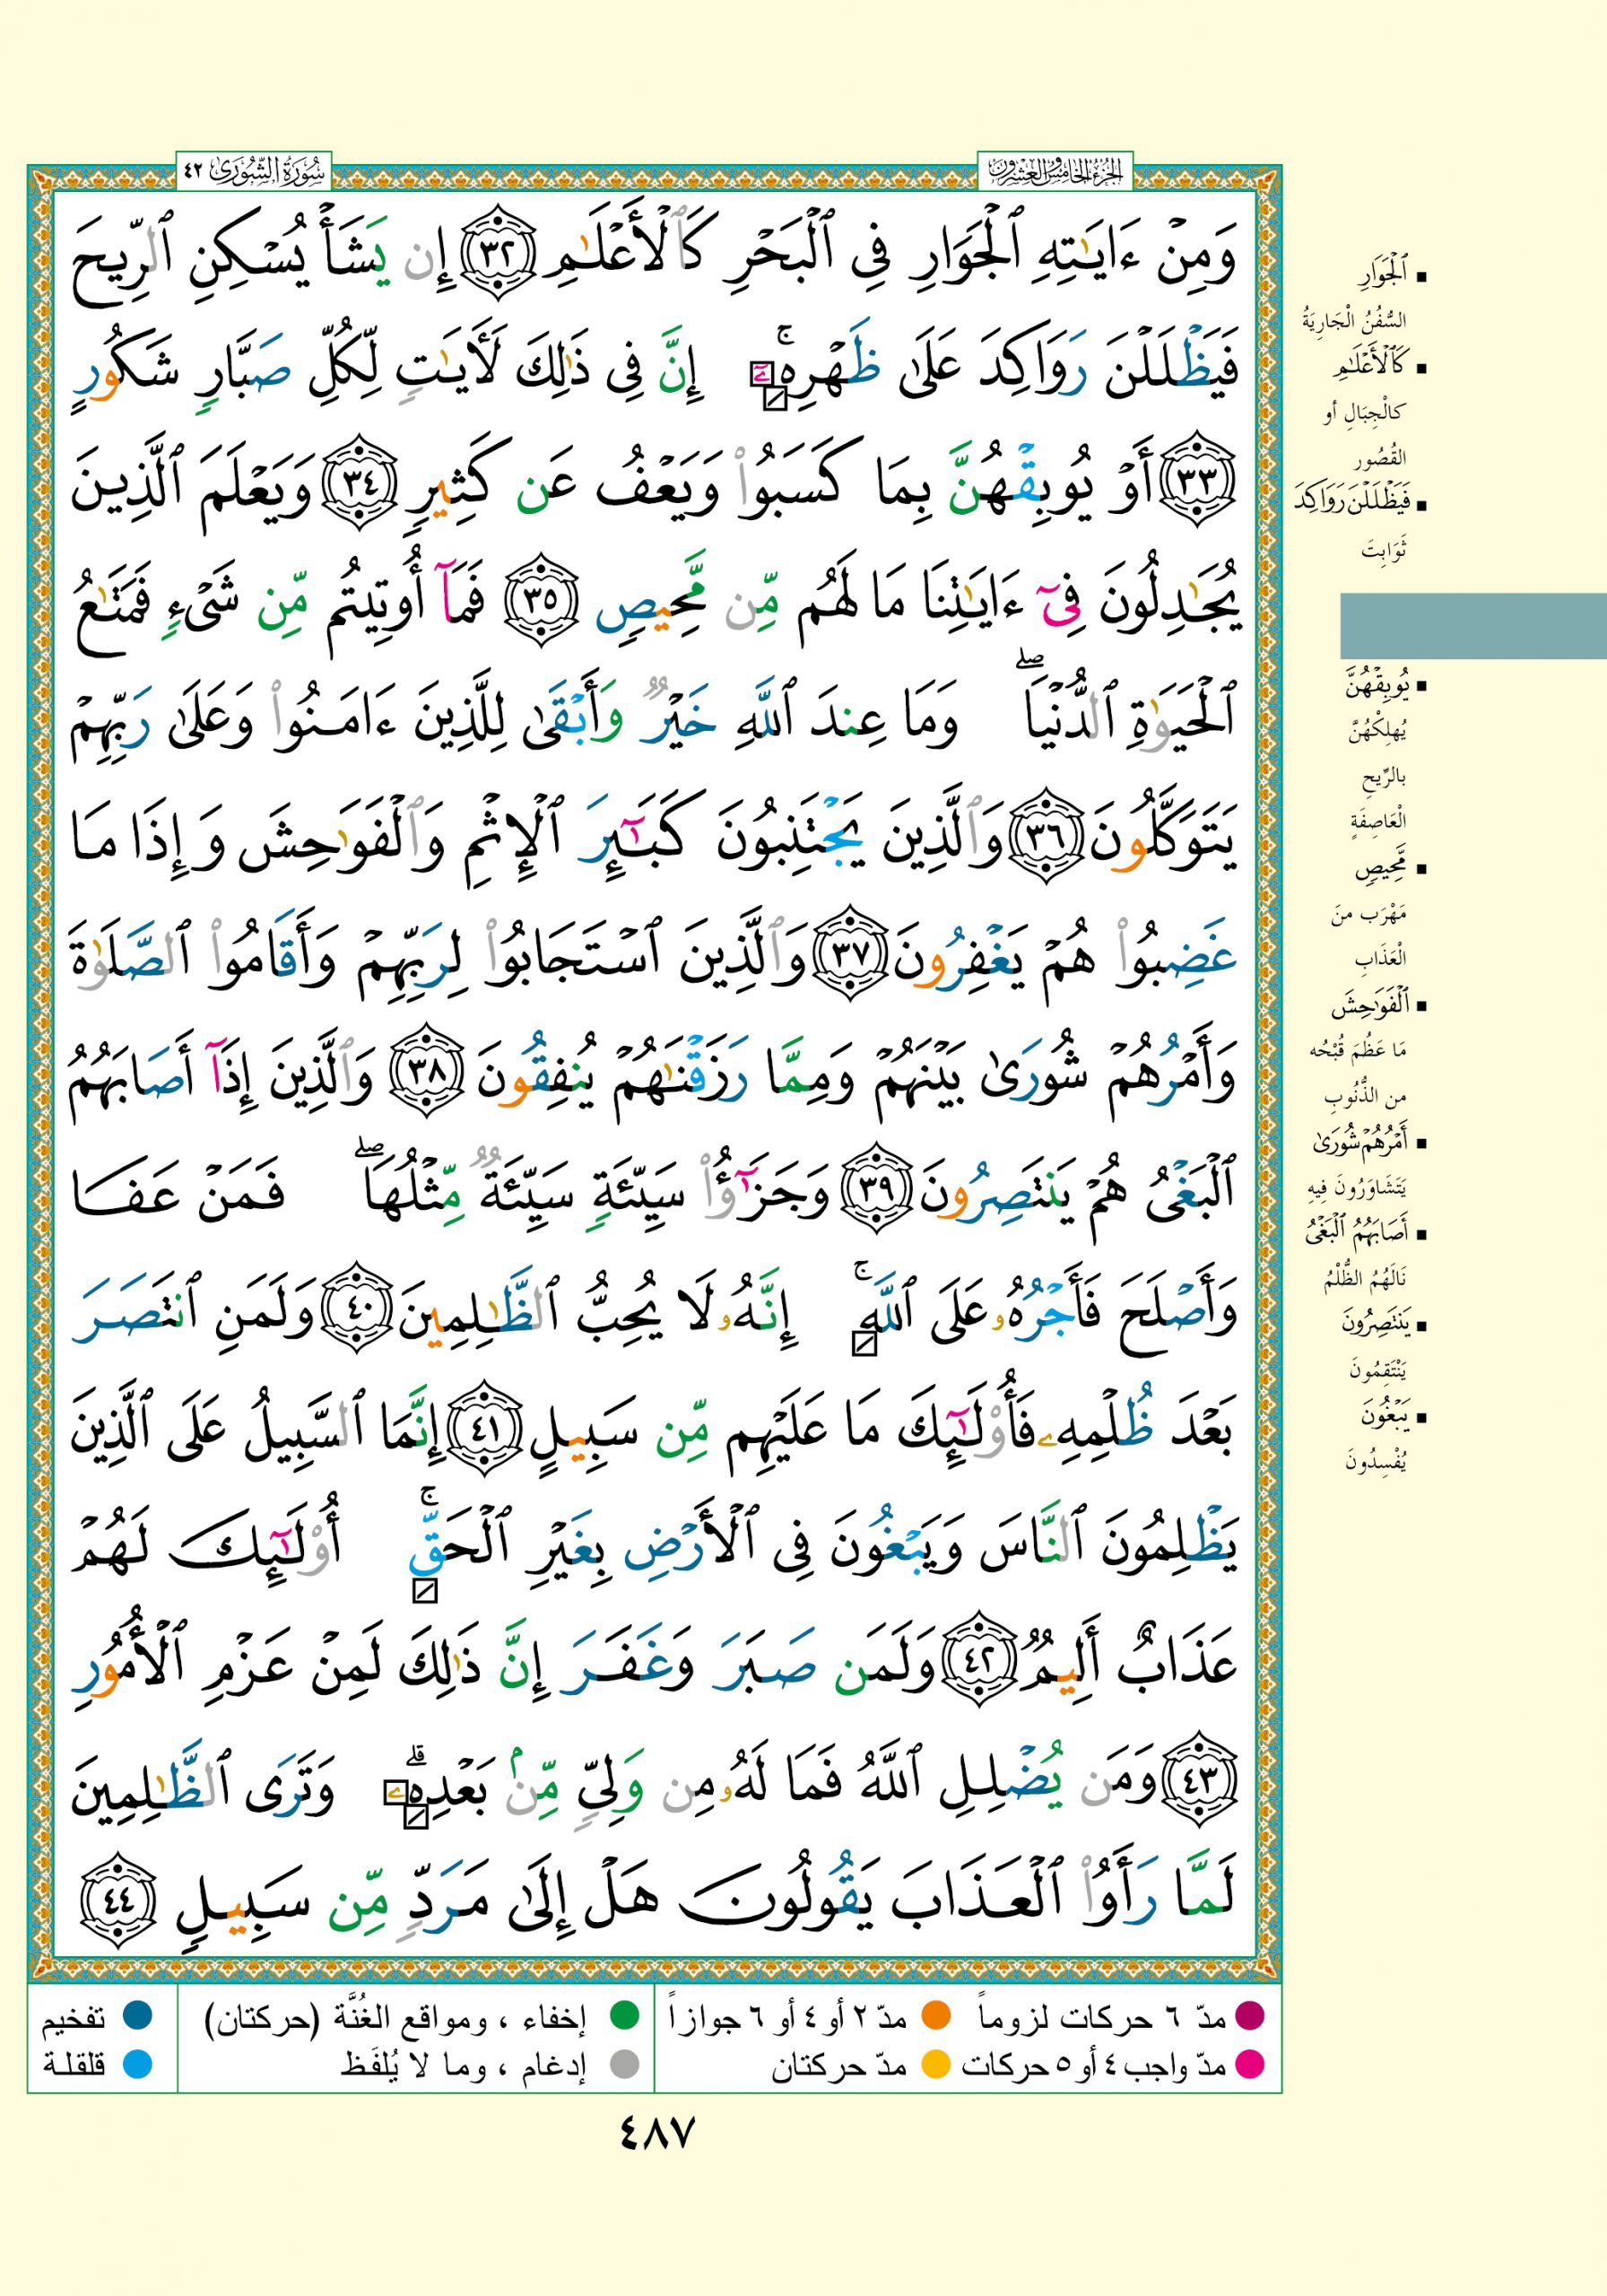 الجزء الخامس والعشرون
سُورَةُ الشُّورَىٰ ٤٢
وَمِنْ ءَايَـٰتِهِ ٱلْجَوَارِ فِى ٱلْبَحْرِ كَٱلْأَعْلَـٰمِ ٣٢ إِن يَشَأْ يُسْكِنِ ٱلرِّيحَ
فَيَظْلَلْنَ رَوَاكِدَ عَلَىٰ ظَهْرِهِۦٓ ۚ إِنَّ فِى ذَٰلِكَ لَـَٔايَـٰتٍ لِّكُلِّ صَبَّارٍ شَكُورٍ
٣٣ أَوْ يُوبِقْهُنَّ بِمَا كَسَبُوا۟ وَيَعْفُ عَن كَثِيرٍ ٣٤ وَيَعْلَمَ ٱلَّذِينَ
يُجَـٰدِلُونَ فِىٓ ءَايَـٰتِنَا مَا لَهُم مِّن مَّحِيصٍ ٣٥ فَمَآ أُوتِيتُم مِّن شَىْءٍ فَمَتَـٰعُ
ٱلْحَيَوٰةِ ٱلدُّنْيَا ۖ وَمَا عِندَ ٱللَّهِ خَيْرٌ وَأَبْقَىٰ لِلَّذِينَ ءَامَنُوا۟ وَعَلَىٰ رَبِّهِمْ
يَتَوَكَّلُونَ ٣٦ وَٱلَّذِينَ يَجْتَنِبُونَ كَبَـٰٓئِرَ ٱلْإِثْمِ وَٱلْفَوَٰحِشَ وَإِذَا مَا
غَضِبُوا۟ هُمْ يَغْفِرُونَ ٣٧ وَٱلَّذِينَ ٱسْتَجَابُوا۟ لِرَبِّهِمْ وَأَقَامُوا۟ ٱلصَّلَوٰةَ
وَأَمْرُهُمْ شُورَىٰ بَيْنَهُمْ وَمِمَّا رَزَقْنَـٰهُمْ يُنفِقُونَ ٣٨ وَٱلَّذِينَ إِذَآ أَصَابَهُمُ
ٱلْبَغْىُ هُمْ يَنتَصِرُونَ ٣٩ وَجَزَٰٓؤُا۟ سَيِّئَةٍ سَيِّئَةٌ مِّثْلُهَا ۖ فَمَنْ عَفَا
وَأَصْلَحَ فَأَجْرُهُۥ عَلَى ٱللَّهِ ۚ إِنَّهُۥ لَا يُحِبُّ ٱلظَّـٰلِمِينَ ٤٠ وَلَمَنِ ٱنتَصَرَ
بَعْدَ ظُلْمِهِۦ فَأُو۟لَـٰٓئِكَ مَا عَلَيْهِم مِّن سَبِيلٍ ٤١ إِنَّمَا ٱلسَّبِيلُ عَلَى ٱلَّذِينَ
يَظْلِمُونَ ٱلنَّاسَ وَيَبْغُونَ فِى ٱلْأَرْضِ بِغَيْرِ ٱلْحَقِّ ۚ أُو۟لَـٰٓئِكَ لَهُمْ
عَذَابٌ أَلِيمٌ ٤٢ وَلَمَن صَبَرَ وَغَفَرَ إِنَّ ذَٰلِكَ لَمِنْ عَزْمِ ٱلْأُمُورِ
٤٣ وَمَن يُضْلِلِ ٱللَّهُ فَمَا لَهُۥ مِن وَلِىٍّ مِّنۢ بَعْدِهِۦ ۗ وَتَرَى ٱلظَّـٰلِمِينَ
لَمَّا رَأَوُا۟ ٱلْعَذَابَ يَقُولُونَ هَلْ إِلَىٰ مَرَدٍّ مِّن سَبِيلٍ ٤٤
▪ ٱلْجَوَارِ
السُّفُنُ الْجَارِيَةُ
▪ كَٱلْأَعْلَـٰمِ
كالْجِبَالِ أو
القُصُور
▪ فَيَظْلَلْنَ رَوَاكِدَ
ثَوَابِتَ
▪ يُوبِقْهُنَّ
يُهلِكْهُنَّ
بالرِّيحِ
الْعَاصِفَةِ
▪ مَّحِيصٍ
مَهْرَب منَ
الْعَذَابِ
▪ ٱلْفَوَٰحِشَ
مَا عَظُمَ قُبْحُه
من الذُّنُوبِ
▪ أَمْرُهُمْ شُورَىٰ
يَتَشَاوَرُونَ فِيهِ
▪ أَصَابَهُمُ ٱلْبَغْىُ
نَالَهُمُ الظُّلْمُ
▪ يَنتَصِرُونَ
يَنْتَقِمُونَ
▪ يَبْغُونَ
يُفْسِدُونَ
مدّ ٦ حركات لزوماً مدّ ٢ أو ٤ أو ٦ جوازاً إخفاء ، ومواقع الغُنَّة (حركتان) تفخيم
مدّ واجب ٤ أو ٥ حركات مدّ حركتان إدغام ، وما لا يُلفَظ قلقلة
٤٨٧